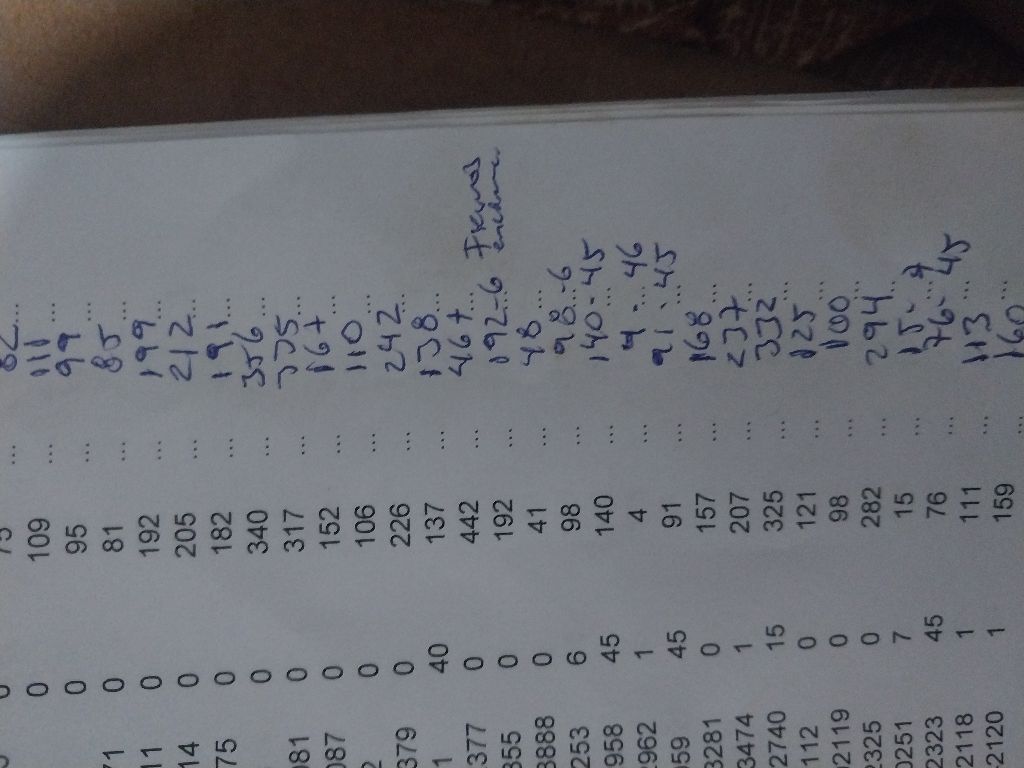 0 75 ... 82 ...
0 109 ... 111 ...
0 95 ... 99 ...
71 0 81 ... 85 ...
11 0 192 ... 199 ...
14 0 205 ... 212 ...
75 0 182 ... 191 ...
0 340 ... 356 ...
081 0 317 ... 335 ...
087 0 152 ... 167 ...
2 0 106 ... 110 ...
379 0 226 ... 242 ...
1 40 137 ... 138 ...
377 0 442 ... 467 ...
355 0 192 ... 192-6 ...
3888 0 41 ... 48 ...
253 6 98 ... 98-6 ...
958 45 140 ... 140-45 ...
962 1 4 ... 4-46 ...
959 45 91 ... 91-45 ...
3281 0 157 ... 168 ...
3474 1 207 ... 237 ...
2740 15 325 ... 332 ...
112 0 121 ... 125 ...
02119 0 98 ... 100 ...
2325 0 282 ... 294 ...
0251 7 15 ... 15-7 ...
2323 45 76 ... 76-45 ...
2118 1 111 ... 113 ...
2120 1 159 ... 160 ...